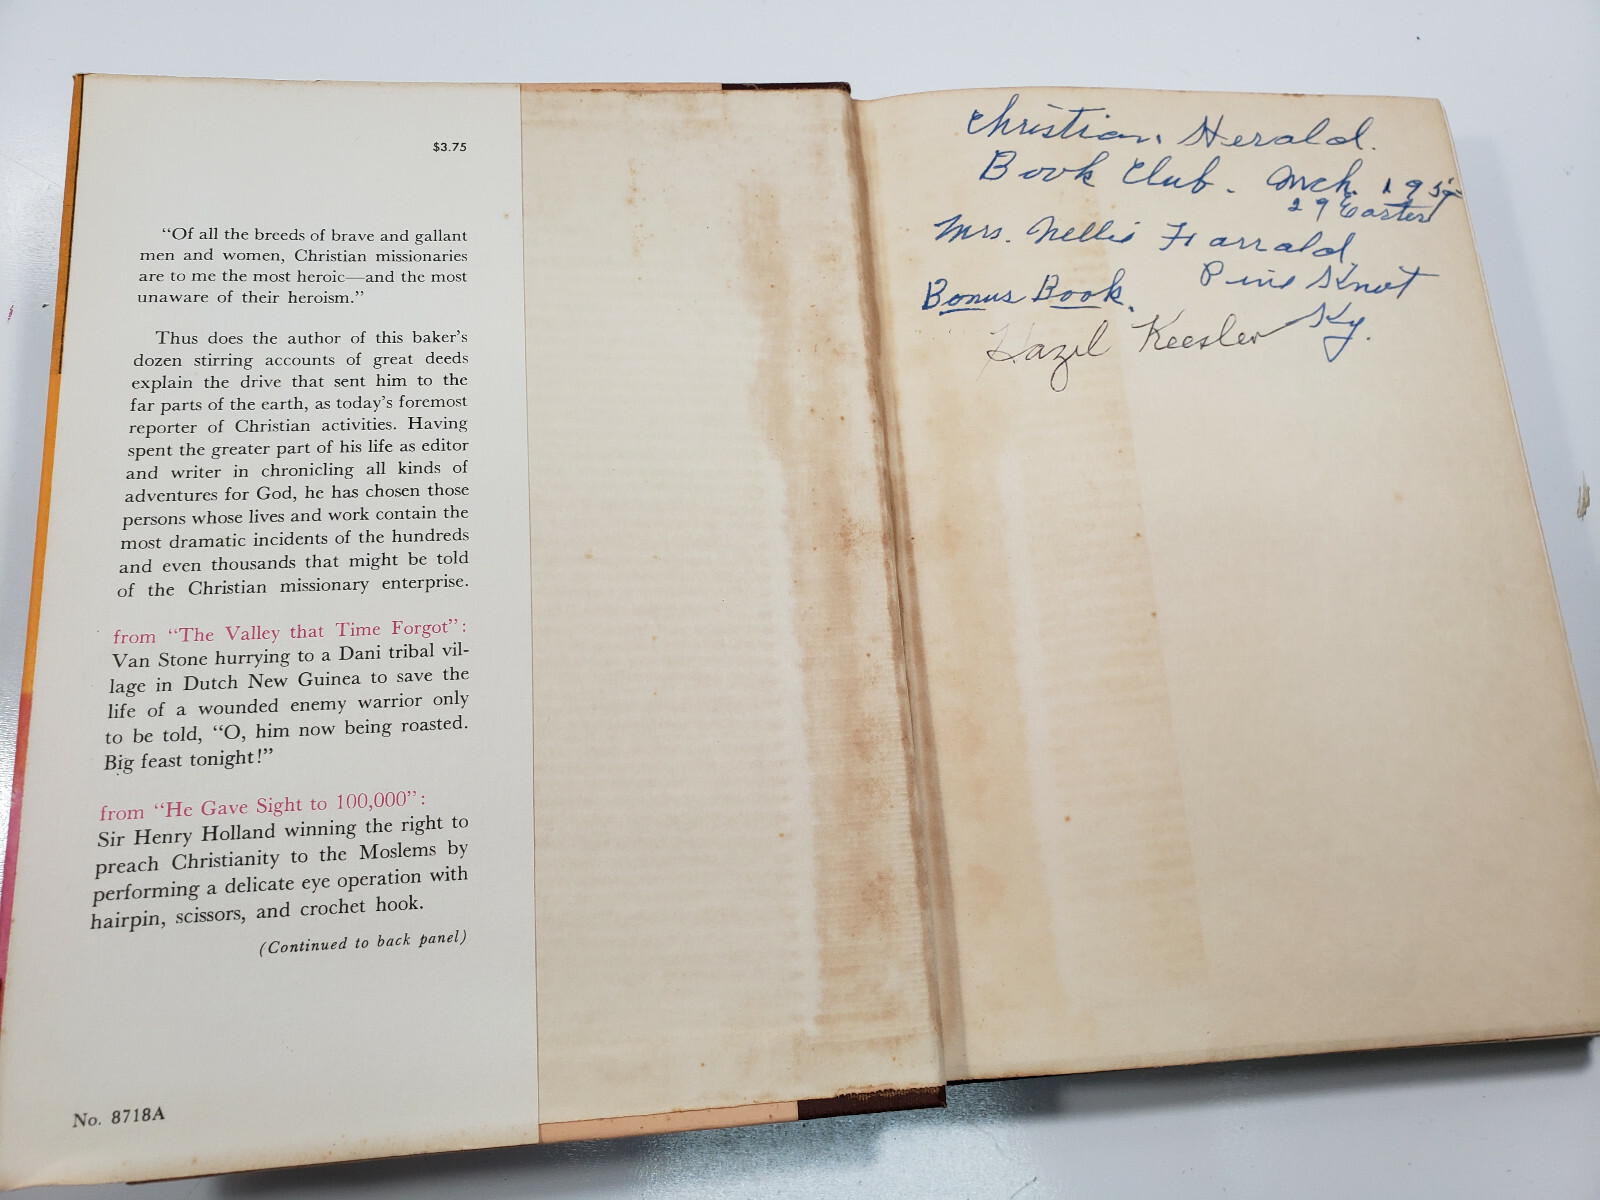 $3.75
“Of all the breeds of brave and gallant
men and women, Christian missionaries
are to me the most heroic—and the most
unaware of their heroism.”
Thus does the author of this baker's
dozen stirring accounts of great deeds
explain the drive that sent him to the
far parts of the earth, as today's foremost
reporter of Christian activities. Having
spent the greater part of his life as editor
and writer in chronicling all kinds of
adventures for God, he has chosen those
persons whose lives and work contain the
most dramatic incidents of the hundreds
and even thousands that might be told
of the Christian missionary enterprise.
from “The Valley that Time Forgot”:
Van Stone hurrying to a Dani tribal vil-
lage in Dutch New Guinea to save the
life of a wounded enemy warrior only
to be told, “O, him now being roasted.
Big feast tonight!”
from “He Gave Sight to 100,000”:
Sir Henry Holland winning the right to
preach Christianity to the Moslems by
performing a delicate eye operation with
hairpin, scissors, and crochet hook.
(Continued to back panel)
No. 8718A
Christian Herald.
Book Club. Mch.
29 Easter
Mrs. Nellie Harrald
Pine Knot
Bonus Book.
Ky.
Hazel Keesler